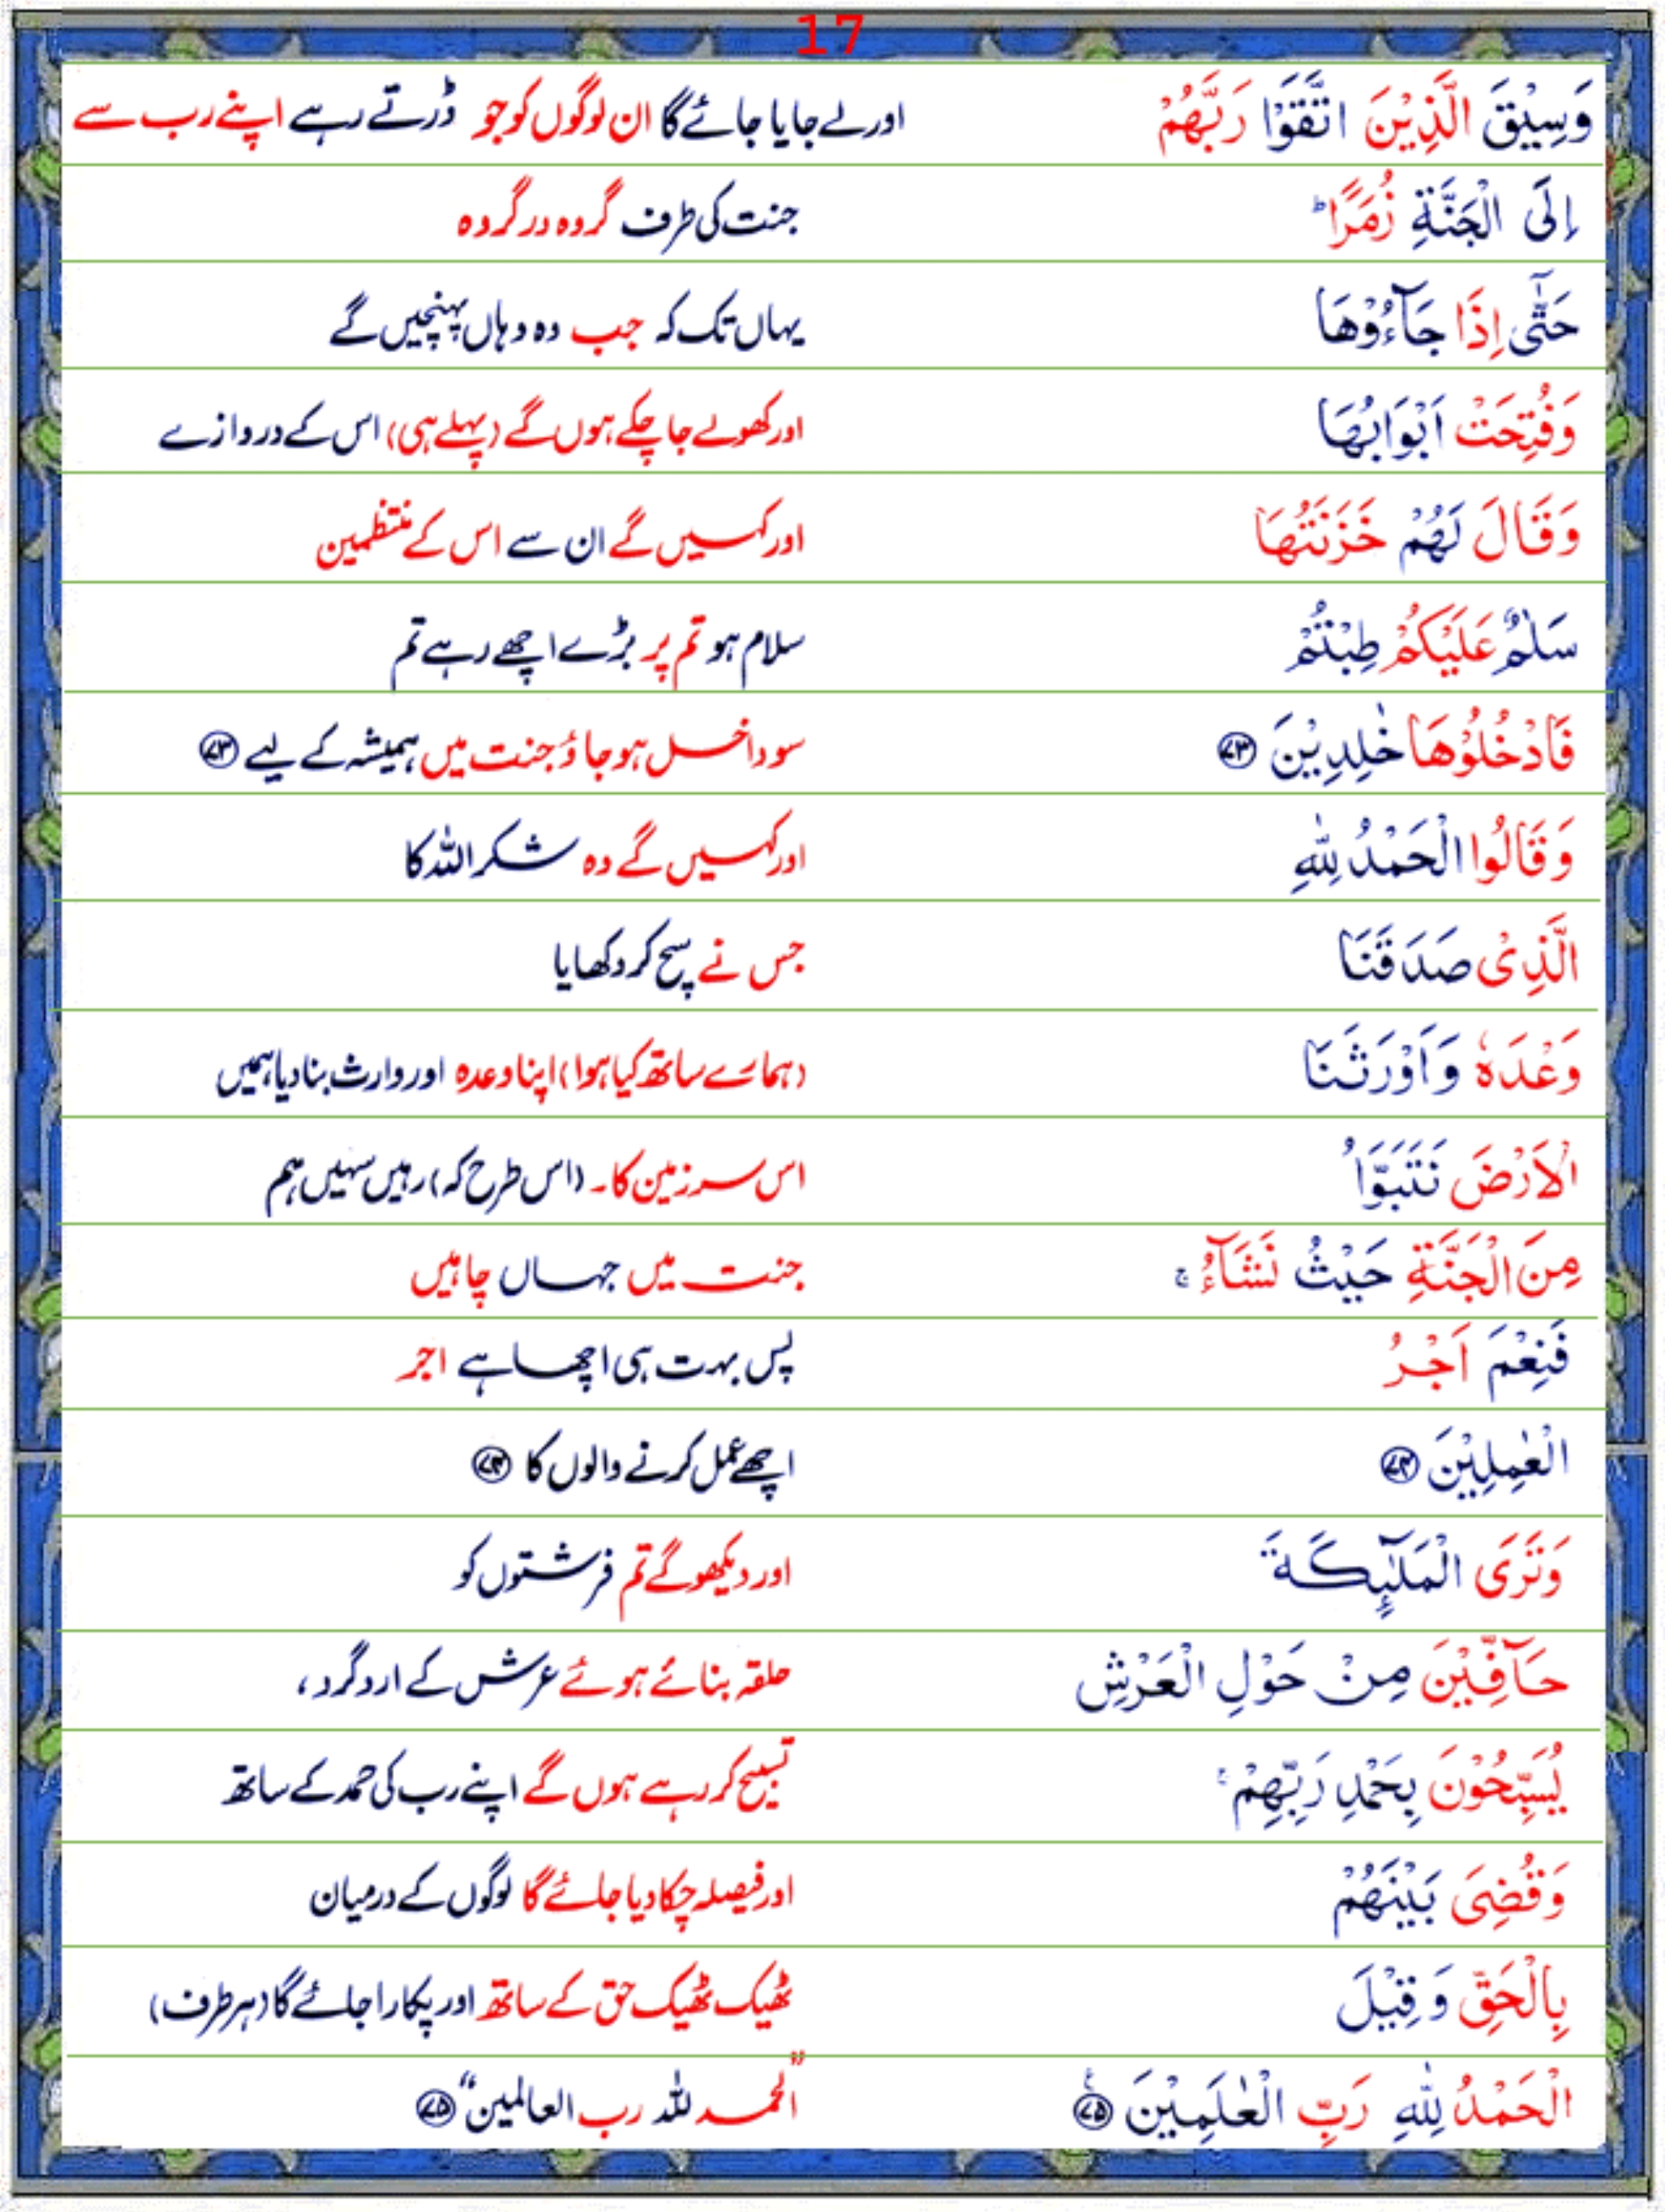 17
وَسِيْقَ الَّذِيْنَ اتَّقَوْا رَبَّهُمْ اور لے جایا جائے گا ان لوگوں کو جو ڈرتے رہے اپنے رب سے
اِلَى الْجَنَّةِ زُمَرًا ؕ جنت کی طرف گروہ در گروہ
حَتّٰٓى اِذَا جَآءُوْهَا یہاں تک کہ جب وہ وہاں پہنچیں گے
وَفُتِحَتْ اَبْوَابُهَا اور کھولے جا چکے ہوں گے (پہلے ہی) اس کے دروازے
وَقَالَ لَهُمْ خَزَنَتُهَا اور کہیں گے ان سے اس کے منتظمین
سَلٰمٌ عَلَيْكُمْ طِبْتُمْ سلام ہو تم پر بڑے اچھے رہے تم
فَادْخُلُوْهَا خٰلِدِيْنَ ۷۳ سو داخل ہو جاؤ جنت میں ہمیشہ کے لیے ۷۳
وَقَالُوا الْحَمْدُ لِلّٰهِ اور کہیں گے وہ شکر اللہ کا
الَّذِىْ صَدَقَنَا جس نے سچ کر دکھایا
وَعْدَهٗ وَاَوْرَثَنَا (ہمارے ساتھ کیا ہوا) اپنا وعدہ اور وارث بنا دیا ہمیں
الْاَرْضَ نَتَبَوَّاُ اس سرزمین کا۔ (اس طرح کہ) رہیں سہیں ہم
مِنَ الْجَنَّةِ حَيْثُ نَشَآءُ ۚ جنت میں جہاں چاہیں
فَنِعْمَ اَجْرُ پس بہت ہی اچھا ہے اجر
الْعٰمِلِيْنَ ۷۴ اچھے عمل کرنے والوں کا ۷۴
وَتَرَى الْمَلٰٓئِكَةَ اور دیکھو گے تم فرشتوں کو
حَآفِّيْنَ مِنْ حَوْلِ الْعَرْشِ حلقہ بنائے ہوئے عرش کے ارد گرد،
يُسَبِّحُوْنَ بِحَمْدِ رَبِّهِمْ ۚ تسبیح کر رہے ہوں گے اپنے رب کی حمد کے ساتھ
وَقُضِىَ بَيْنَهُمْ اور فیصلہ چکا دیا جائے گا لوگوں کے درمیان
بِالْحَقِّ وَقِيْلَ ٹھیک ٹھیک حق کے ساتھ اور پکارا جائے گا (ہر طرف)
الْحَمْدُ لِلّٰهِ رَبِّ الْعٰلَمِيْنَ ۷۵ "الحمد للہ رب العالمین" ۷۵